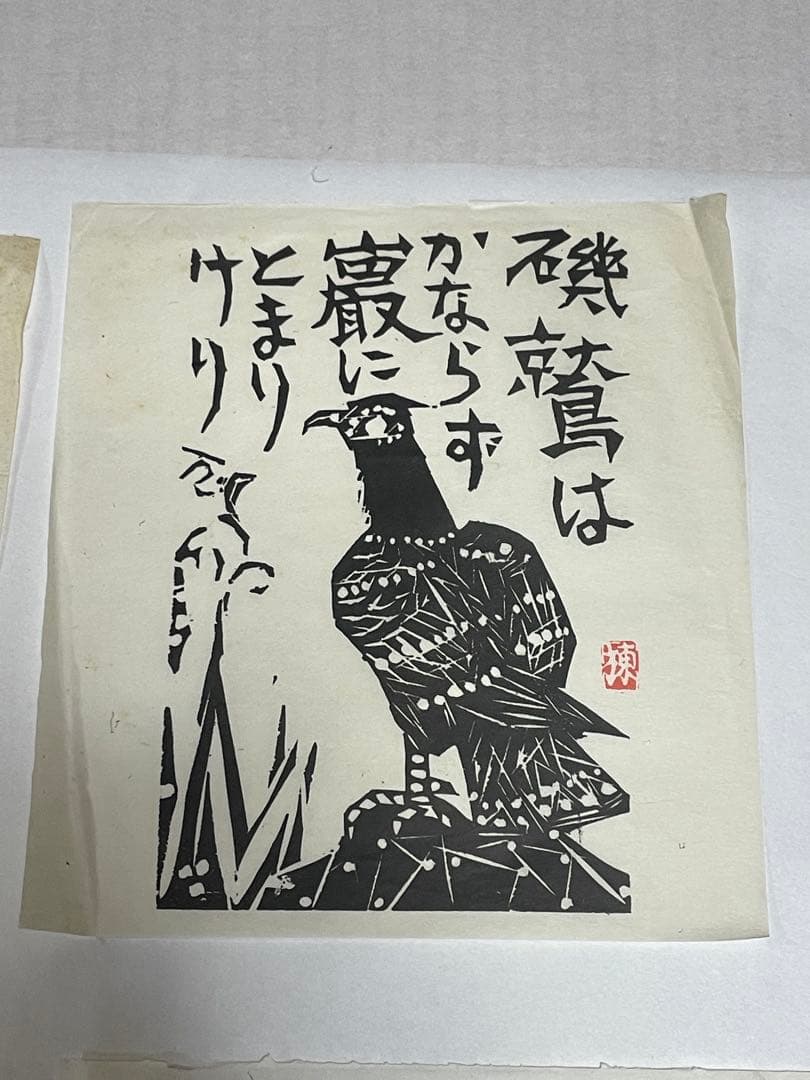 磯鷲は
かならず
巖に
とまり
けり
棟